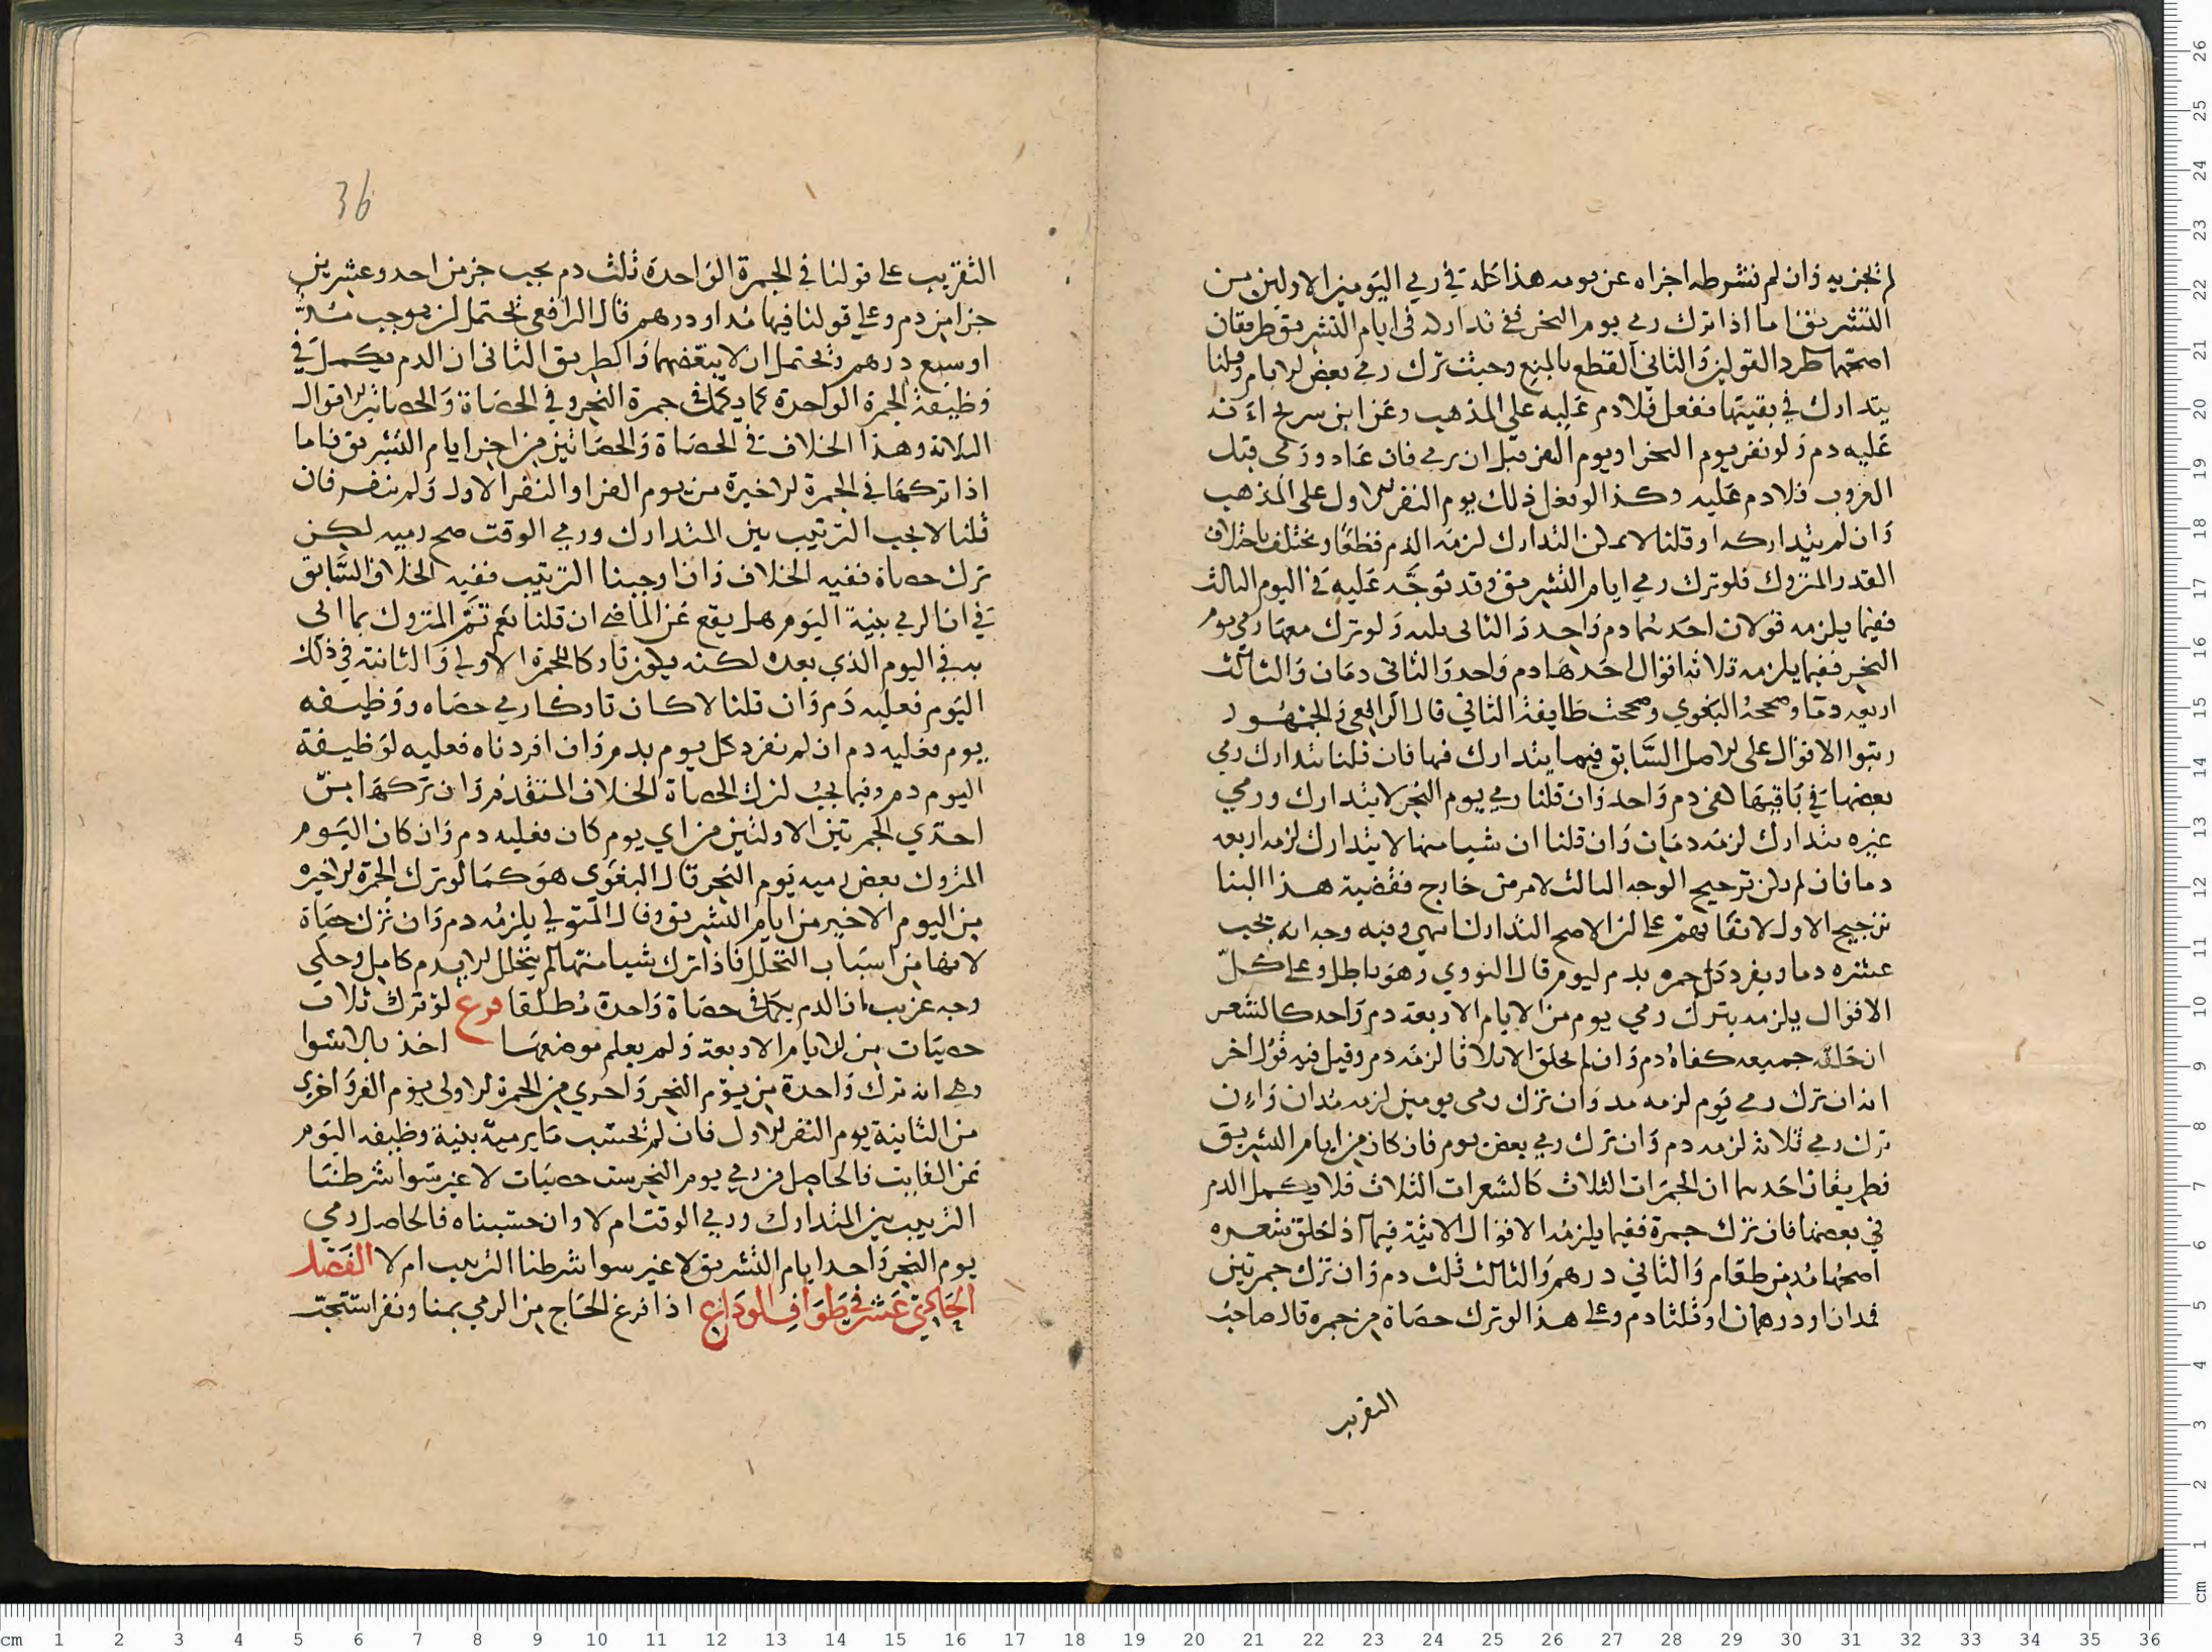 لم تجزيه وان لم نشرطه اجزاه عن يومه هذا كله في رمي اليومين الاولين من
التشريق اما اذا ترك رمي يوم النحر ففي تداركه في ايام التشريق طريقان
اصحهما طرد القولين والثاني القطع بالمنع وحيث ترك رمي بعض الايام وقلنا
يتدارك في بقيتها ففعل فلا دم عليه على المذهب وعن ابن سريج
عليه دم ولو نفر يوم النحر او يوم القر قبل ان يرمي فان عاد ورمى قبل
الغروب فلا دم عليه وكذا لو فعل ذلك يوم النفر الاول على المذهب
وان لم يتداركه او قلنا لا يمكن التدارك لزمه الدم قطعا ويختلف باختلاف
القدر المتروك فلو ترك رمي ايام التشريق وقد توجه عليه في اليوم الثالث
ففيما يلزمه قولان احدهما دم واحد والثاني ثلاثة ولو ترك معها رمي يوم
النحر ففيما يلزمه ثلاثة اقوال احدها دم واحد والثاني دمان والثالث
اربعه دما وصححه البغوي وصححت طايفة الثاني قال الرافعي والجمهور
رتبوا الاقوال على الاصل السابق فيما يتدارك فيها فان قلنا يتدارك رمي
بعضها في باقيها كفى دم واحد وان قلنا رمي يوم النحر لا يتدارك ورمي
غيره يتدارك لزمه دمان وان قلنا ان شيا منها لا يتدارك لزمه اربعه
دما فان لم يكن ترجيح الوجه الثالث لامر من خارج فقضية هذا البنا
ترجيح الاول لاتفاقهم على ان الاصح التدارك انتهى وفيه وجه انه يجب
عشره دما ويفرد كل جمره بدم ليوم قال النووي وهو باطل وعلى كل
الاقوال يلزمه بترك رمي يوم من الايام الاربعة دم واحد كالشعر
ان حلق جميعه كفاه دم وان لم يحلق الا ثلاثا لزمه دم وقيل فيه قول اخر
انه ان ترك رمي يوم لزمه مد وان ترك رمي يومين لزمه مدان وان
ترك رمي ثلاثة لزمه دم وان ترك رمي بعض يوم فان كان من ايام التشريق
فطريقان احدهما ان الجمرات الثلاث كالشعرات الثلاث فلا يكمل الدم
في بعضها فان ترك جمرة ففيما يلزمه الاقوال الاتية فيما اذا حلق شعره
اصحها مد من طعام والثاني درهم والثالث ثلث دم وان ترك جمرتين
فمدان او درهمان او ثلثا دم وعلى هذا لو ترك حصاة من جمره قال صاحب
التقريب
36
التقريب على قولنا في الجمرة الواحدة ثلث دم يجب جز من احد وعشرين
جزا من دم وعلى قولنا فيها مد او درهم قال الرافعي يحتمل ان يوجب سبع مد
او سبع درهم ويحتمل ان لا يبعضهما والطريق الثاني ان الدم يكمل في
وظيفة الجمرة الواحدة كما يكمل في جمرة النحر وفي الحصاة والحصاتين الاقوال
الثلاثة وهذا الخلاف في الحصاة والحصاتين من اخر ايام التشريق فاما
اذا تركها في الجمرة الاخيرة من يوم القر او النفر الاول ولم ينفر فان
قلنا لا يجب الترتيب بين المتدارك ورمي الوقت صح رميه لكن
ترك حصاة ففيه الخلاف وان اوجبنا الترتيب ففيه الخلاف السابق
في ان الرمي بنية اليوم هل يقع عن الماضي ان قلنا نعم تم المتروك بما اتى
به في اليوم الذي بعده لكنه يكون تاركا للجمرة الاولى والثانية في ذلك
اليوم فعليه دم وان قلنا لا كان تاركا رمي حصاه ووظيفه
يوم فعليه دم ان لم نفرد كل يوم بدم وان افردناه فعليه لوظيفة
اليوم دم وفيما يجب لترك الحصاة الخلاف المتقدم وان تركها من
احدي الجمرتين الاولتين من اي يوم كان فعليه دم وان كان اليوم
المتروك بعض رميه يوم النحر قال البغوي هو كما لو ترك الجمرة الاخيره
من اليوم الاخير من ايام التشريق وقال المتولي يلزمه دم وان ترك حصاة
لانها من اسباب التحلل فاذا ترك شيا منها لم يتحلل الا ببدم كامل وحكي
وجه غريب ان الدم يكمل في حصاة واحدة مطلقا فرع لو ترك ثلاث
حصيات من الايام الاربعة ولم يعلم موضعها اخذ بالاسوا
وهي انه ترك واحدة من يوم النحر واحدي من الجمرة الاولى يوم القر واخرى
من الثانية يوم النفر الاول فان لم نحسب ما يرميه بنية وظيفه اليوم
عن الفايت فالحاصل من رمي يوم النحر ست حصيات لا غير سوا شرطنا
الترتيب بين المتدارك ورمي الوقت ام لا وان حسبناه فالحاصل رمي
يوم النحر واحد ايام التشريق لا غير سوا شرطنا الترتيب ام لا الفصل
الحادي عشر في طواف الوداع اذا فرغ الحاج من الرمي بمنا ونفر استحب